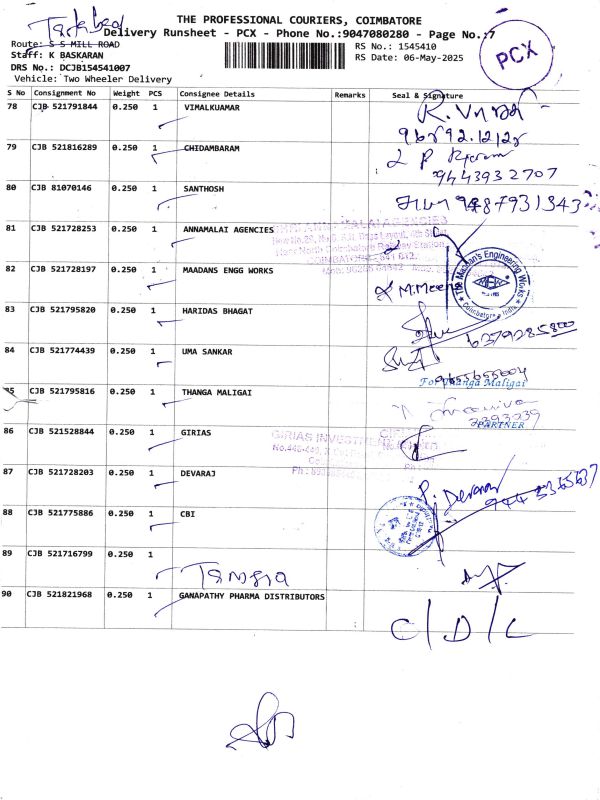 THE PROFESSIONAL COURIERS, COIMBATORE
Delivery Runsheet - PCX - Phone No.:9047080280 - Page No.:7
PCX
Route: S S MILL ROAD
Staff: K BASKARAN
DRS No.: DCJB154541007
Vehicle: Two Wheeler Delivery
RS No.: 1545410
RS Date: 06-May-2025
S No Consignment No Weight PCS Consignee Details Remarks Seal & Signature
78 CJB 521791844 0.250 1 VIMALKUAMAR
79 CJB 521816289 0.250 1 CHIDAMBARAM
9443932707
80 CJB 81070146 0.250 1 SANTHOSH
9487931343
81 CJB 521728253 0.250 1 ANNAMALAI AGENCIES
82 CJB 521728197 0.250 1 MAADANS ENGG WORKS
M. Meena
The Maadhan's Engineering Works
Coimbatore India
83 CJB 521795820 0.250 1 HARIDAS BHAGAT
84 CJB 521774439 0.250 1 UMA SANKAR
85 CJB 521795816 0.250 1 THANGA MALIGAI
For Thanga Maligai
PARTNER
86 CJB 521528844 0.250 1 GIRIAS
GIRIAS INVESTMENT
87 CJB 521728203 0.250 1 DEVARAJ
P. Devaraj
88 CJB 521775886 0.250 1 CBI
89 CJB 521716799 0.250 1
90 CJB 521821968 0.250 1 GANAPATHY PHARMA DISTRIBUTORS
C/D/L